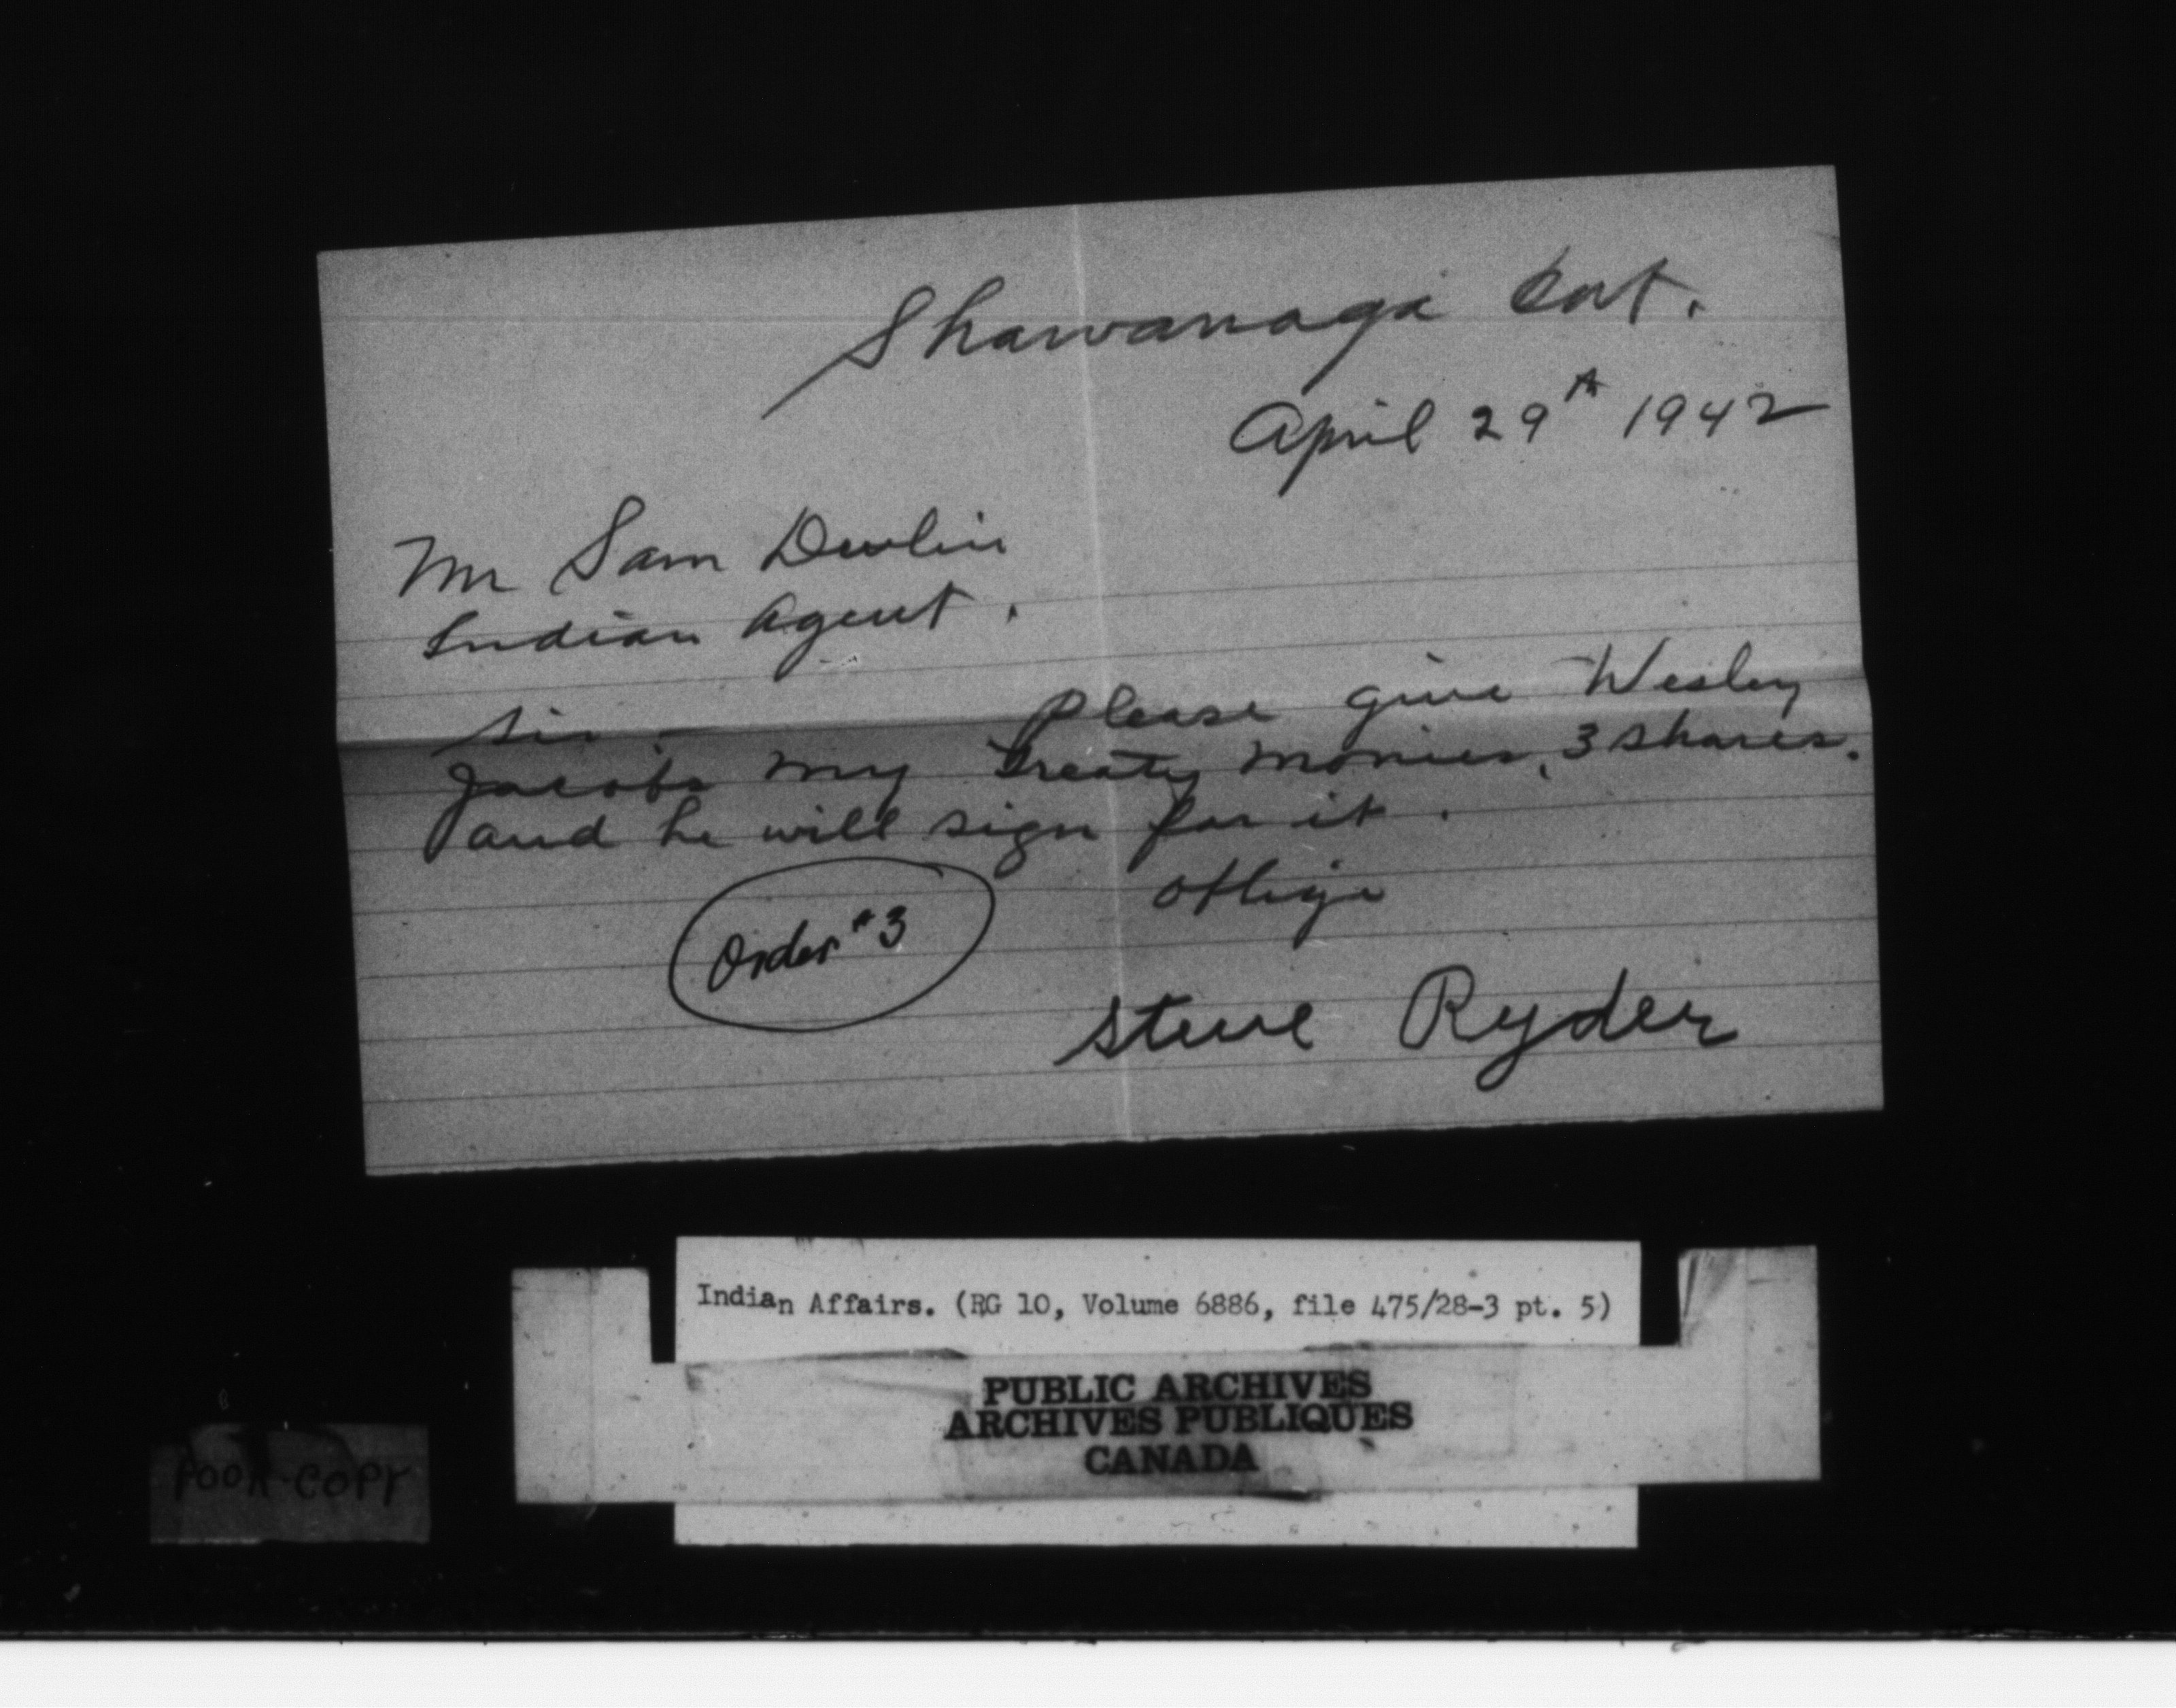 Shawanaga Ont.
April 29th 1942
Mr Sam Devlin
Indian Agent.
Sir - Please give Wesley
Jacobs my Treaty Monies, 3 shares.
and he will sign for it.
oblige
Order #3
Steve Ryder
Indian Affairs. (RG 10, Volume 6886, file 475/28-3 pt. 5)
PUBLIC ARCHIVES
ARCHIVES PUBLIQUES
CANADA
POOR COPY